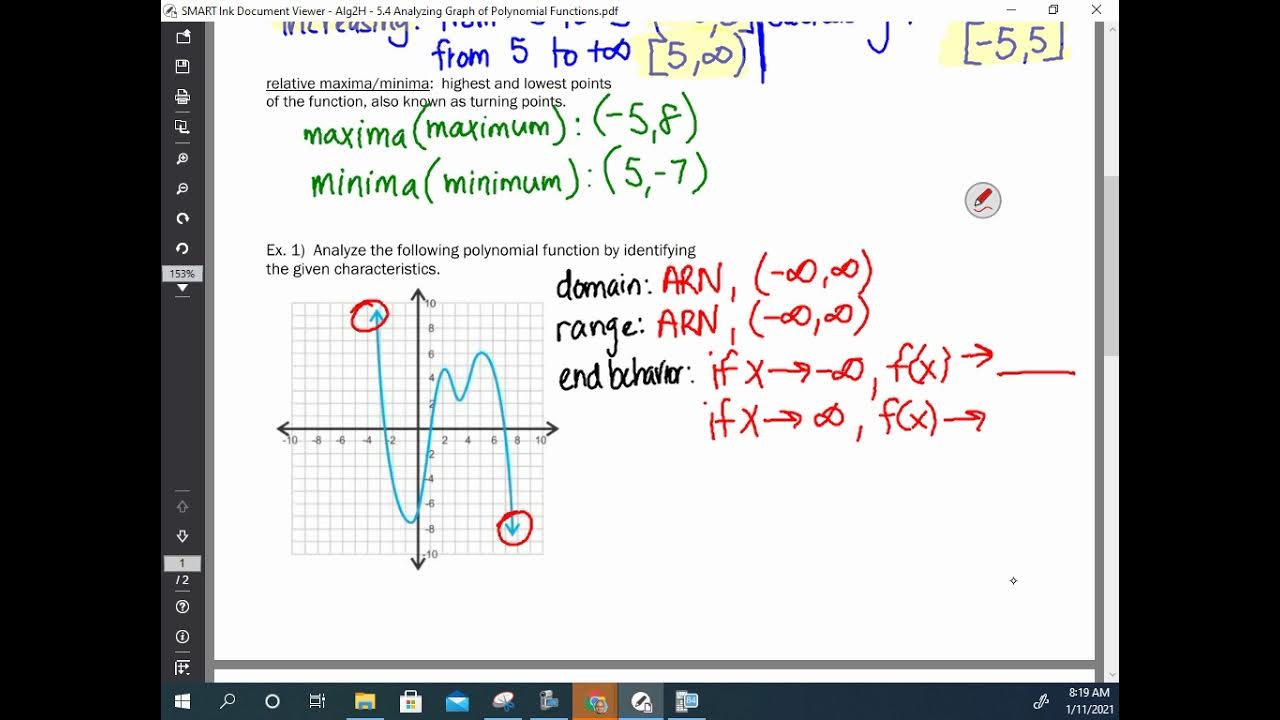 SMART Ink Document Viewer - Alg2H - 5.4 Analyzing Graph of Polynomial Functions.pdf
increasing:
from 5 to +∞ [5,∞)
[-5,5]
relative maxima/minima: highest and lowest points
of the function, also known as turning points.
maxima(maximum): (-5,8)
minima(minimum): (5,-7)
Ex. 1) Analyze the following polynomial function by identifying
the given characteristics.
domain: ARN, (-∞,∞)
range: ARN, (-∞,∞)
end behavior: if x→-∞, f(x)→____
if x→∞, f(x)→
10
8
6
4
2
-10 -8 -6 -4 -2 2 4 6 8 10
-2
-4
-6
-8
-10
153%
1
/ 2
84
8:19 AM
1/11/2021